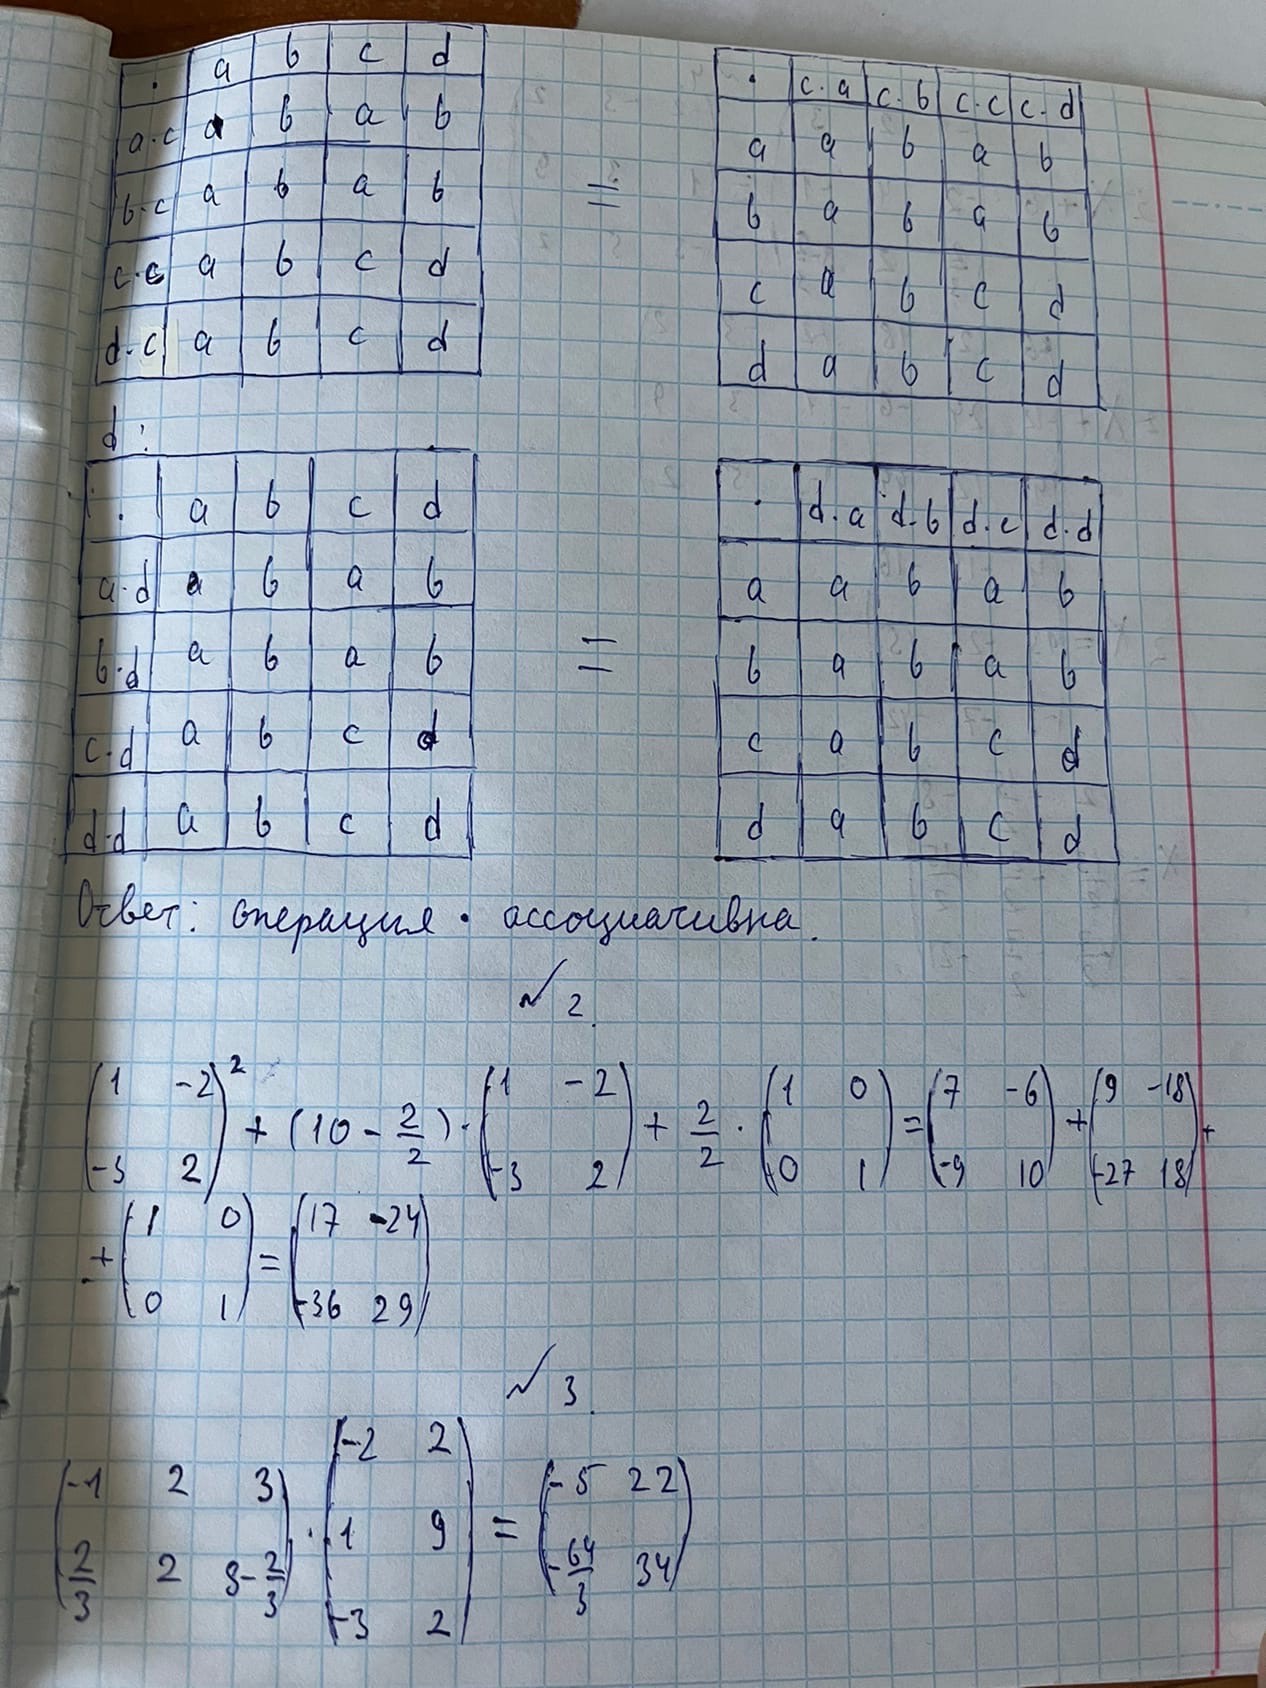 · a b c d
a·c a b a b
b·c a b a b
c·c a b c d
d·c a b c d
=
· c·a c·b c·c c·d
a a b a b
b a b a b
c a b c d
d a b c d
d:
· a b c d
a·d a b a b
b·d a b a b
c·d a b c d
d·d a b c d
=
· d·a d·b d·c d·d
a a b a b
b a b a b
c a b c d
d a b c d
Ответ: операция · ассоциативна.
№2.
(1 -2; -3 2)² + (10 - 2/2) · (1 -2; -3 2) + 2/2 · (1 0; 0 1) = (7 -6; -9 10) + (9 -18; -27 18) +
+ (1 0; 0 1) = (17 -24; -36 29)
№3.
(-1 2 3; 2/3 2 8-2/3) · (-2 2; 1 9; -3 2) = (-5 22; -64/3 34)